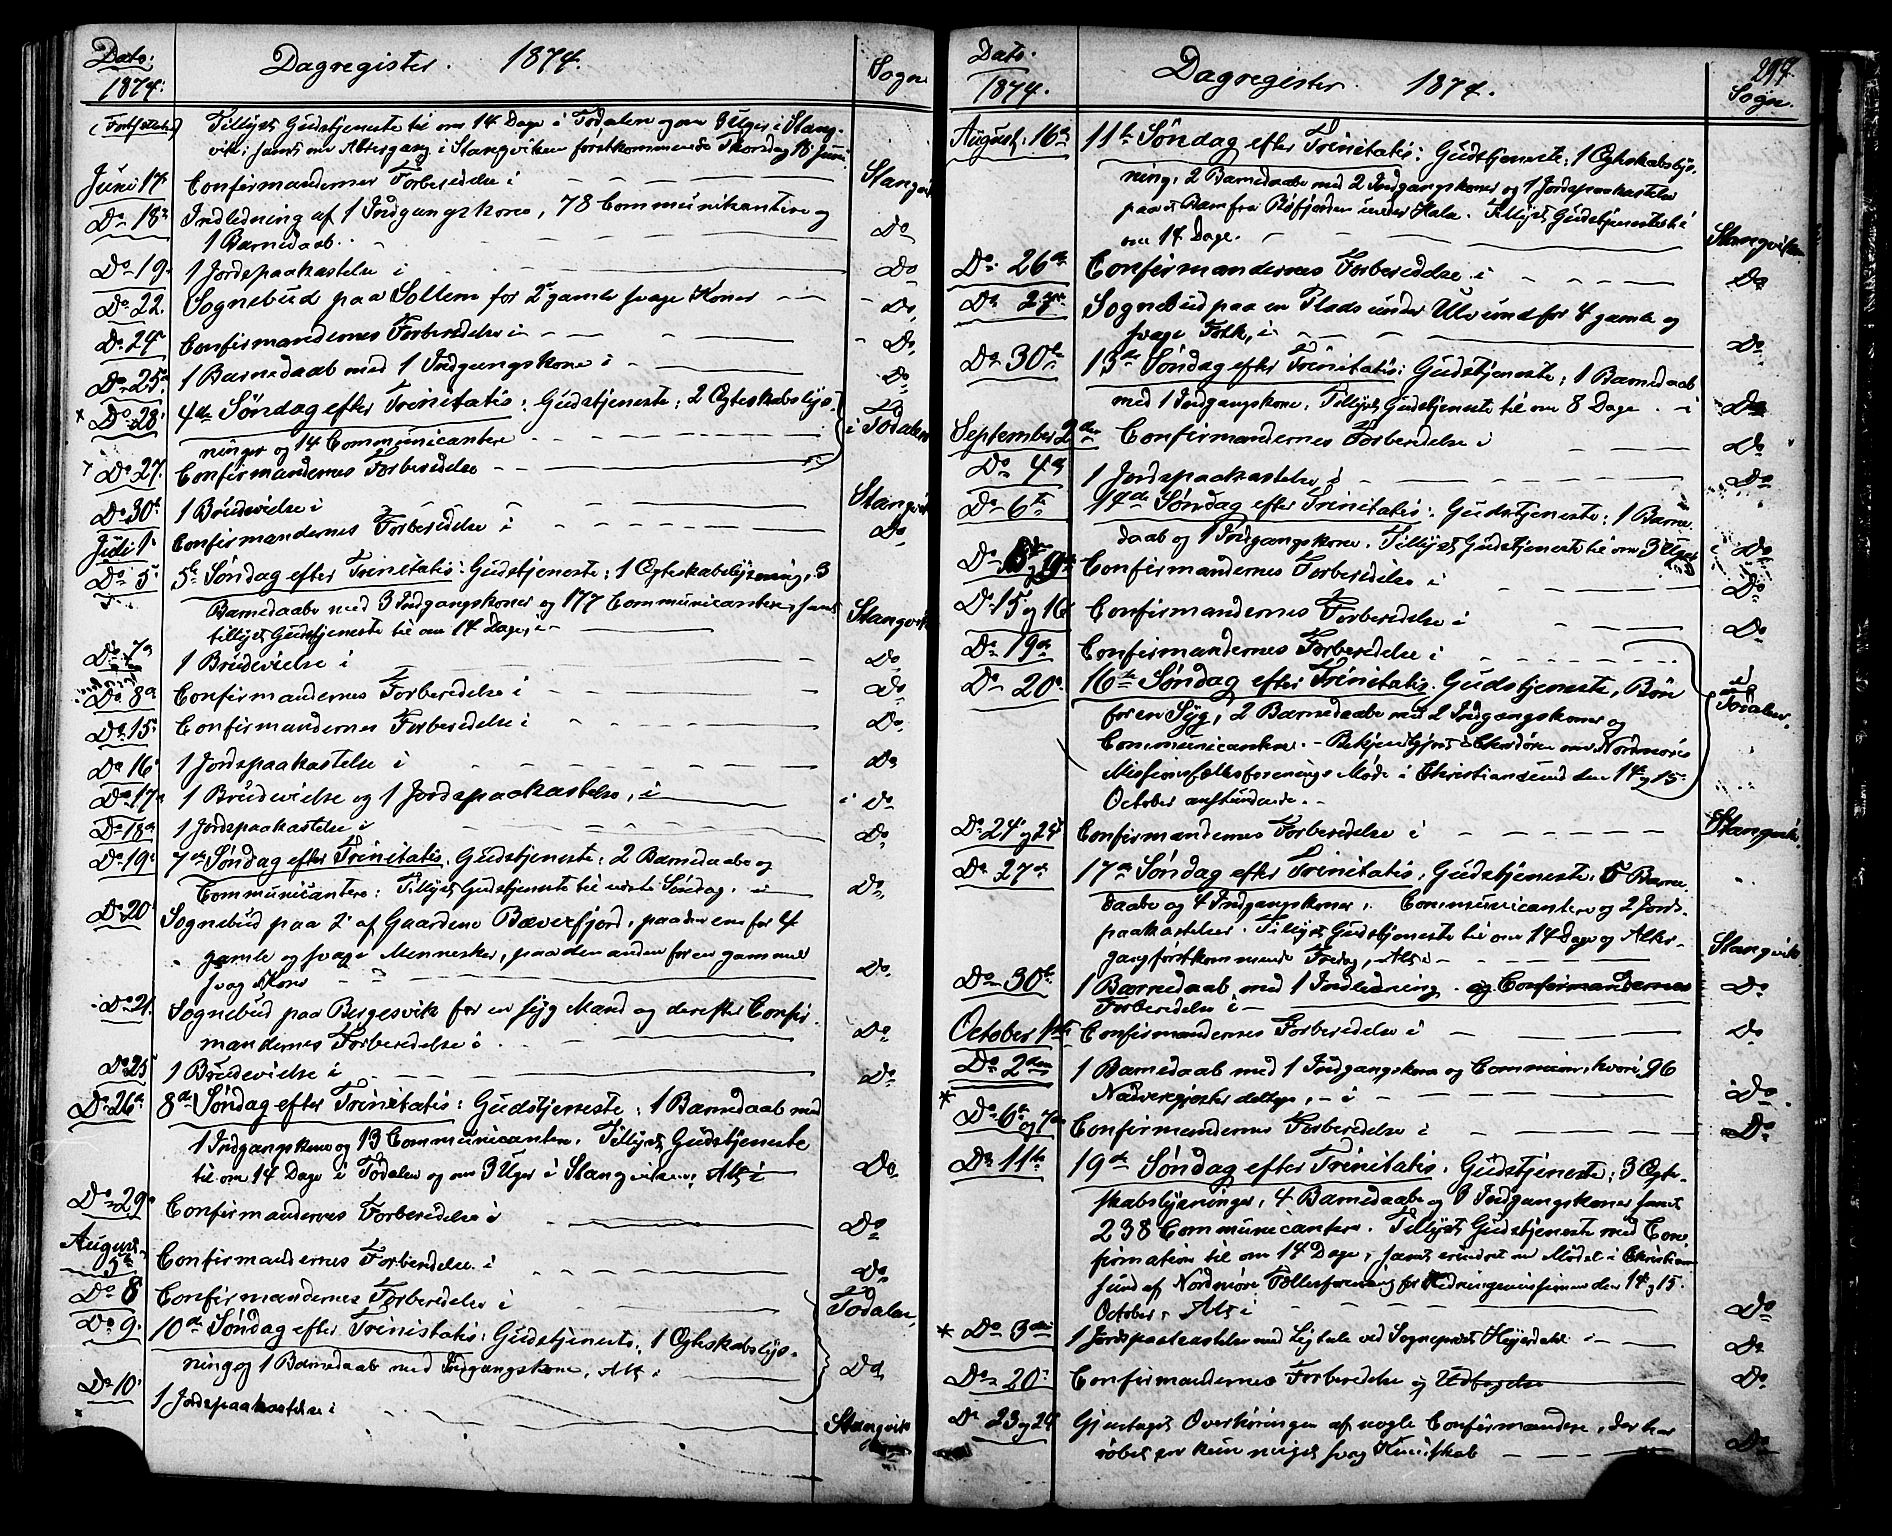 Dato: Dagregister. 1874. Sogn
1874.
(Fortsættelse) Tillyst Gudstjeneste til om 14 Dage i Todalen og om 3 Uger i Stang-
vik; samt om Altergang i Stangviken førstkommende Thorsdag 18 Juni
Juni 17. Confirmandernes Forberedelse i Stangvik
Do 18. Indledning af 1 Indgangskone, 78 Communikantere og
1 Barnedaab. Do
Do 19. 1 Jordspaakastelse i Do
Do 22. Sognebud paa Sollem for 2 gamle svage Koner Do
Do 24 Confirmandernes Forberedelse i Do
Do 25 1 Barnedaab med 1 Indgangskone i Do
* Do 28. 4de Søndag efter Trinitatis: Gudstjeneste; 2 Ægteskabslys-
ninger og 14 Communicantere i Todalen
Do 27. Confirmandernes Forberedelse
Do 30. 1 Brudevielse i Stangvik
Juli 1. Confirmandernes Forberedelse i Do
Do 5. 5te Søndag efter Trinitatis: Gudstjeneste; 1 Ægteskabslysning, 3
Barnedaabe med 3 Indgangskoner og 177 Communicantere, samt
tillyst Gudstjeneste til om 14 Dage, i Stangvik
Do 7 1 Brudevielse i Do
Do 8 Confirmandernes Forberedelse i Do
Do 15. Confirmandernes Forberedelse i Do
Do 16 1 Jordspaakastelse i Do
Do 17 1 Brudevielse og 1 Jordspaakastelse, i Do
Do 18 1 Jordspaakastelse i Do
Do 19. 7de Søndag efter Trinitatis. Gudstjeneste; 2 Barnedaabe og
Communicantere: Tillyst Gudstjeneste til næste Søndag. i Do
Do 20 Sognebud paa 2 af Gaardene Bæverfjord, paa den ene for 4
gamle og svage Mennesker, paa den anden for en gammel
svag Kone Do
Do 21. Sognebud paa Bergesvik for en syg Mand og derefter Confir-
mandernes Forberedelse i Do
Do 25 1 Brudevielse i Do
Do 26. 8de Søndag efter Trinitatis: Gudstjeneste; 1 Barnedaab med
1 Indgangskone og 13 Communicantere. Tillyst Gudstjeneste
til om 14 Dage i Todalen og om 3 Uger i Stangviken; Alt i Do
Do 29. Confirmandernes Forberedelse i Do
August 5te Confirmandernes Forberedelse i Do
Do 8 Confirmandernes Forberedelse i Todalen
Do 9. 10de Søndag efter Trinistatis: Gudstjeneste; 1 Ægteskabslys-
ning og 1 Barnedaab med Indgangskone, Alt i Do
Do 10. 1 Jordspaakastelse i Stangvik
Dato. Dagregister. 1874. 297.
1874. Sogn.
August. 16 11te Søndag efter Trinitatis: Gudstjeneste; 1 Ægteskabslys-
ning; 2 Barnedaabe med 2 Indgangskoner og 1 Jordspaakastelse
paa et Barn fra Bøfjorden under Hala. Tillyst Gudstjeneste til
om 14 Dage. Stangviken
Do 26 Confirmandernes Forberedelse i Do
Do 27 Sognebud paa en Plads under Ulvund for 4 gamle og
svage Folk, i Do
Do 30te 13de Søndag efter Trinitatis: Gudstjeneste; 1 Barnedaab
med 1 Indgangskone. Tillyst Gudstjeneste til om 8 Dage. i Do
September 2den Confirmandernes Forberedelse i Do
Do 4 1 Jordspaakastelse i Do
Do 6te 14de Søndag efter Trinitatis: Gudstjeneste; 1 Barne-
daab og 1 Indgangskone. Tillyst Gudstjeneste til om 3 Uger Do
Do 8 og 9 Confirmandernes Forberedelse i Do
Do 15 og 16 Confirmandernes Forberedelse i Do
Do 19 Confirmandernes Forberedelse i
Do 20. 16te Søndag efter Trinitatis. Gudstjeneste, Bøn i Todalen.
for en Syg, 2 Barnedaabe med 2 Indgangskoner og
Communicantere. - Bekjendtgjort i Chordøren om Nordmøre
Missionsfællesforenings Møde i Christiansund den 14 og 15
October anstundende.
Do 24 og 25 Confirmandernes Forberedelse i Stangvik.
Do 27 17 Søndag efter Trinitatis. Gudstjeneste. 5 Barne-
daabe og 4 Indgangskoner. Communicantere og 2 Jords-
paakastelser. Tillyst Gudstjeneste til om 14 Dage og Alter-
gang førstkommende Fredag, Alt i Stangvik.
Do 30te 1 Barnedaab med 1 Indledning. og Confirmandernes
Forberedelse i Do
October 1ste Confirmandernes Forberedelse i Do
Do 2den 1 Barnedaab med 1 Indgangskone og Communion, hvori 96
Nadvergjæster deltoge, i Do
* Do 6 og 7 Confirmandernes Forberedelse i Do
Do 11te 19de Søndag efter Trinitatis. Gudstjeneste; 3 Ægte-
skabslysninger, 4 Barnedaabe og 3 Indgangskoner samt
238 Communicantere. Tillyst Gudstjeneste med Con-
firmation til om 14 Dage, samt erindret om Mødet i Christian
sund af Nordmøre Fællesforening for Hedningemissionen den 14 og 15.
October, Alt i Do
* Do 3die 1 Jordspaakastelse med Ligtale ved Sogneprest Heyerdahl i Do
Do 20. Confirmandernes Forberedelse og Udbegdse Do
Do 23 og 24 Gjentaget Overhøringen af nogle Confirmandere, der har
røbet en kun meget svag Kundskab Do